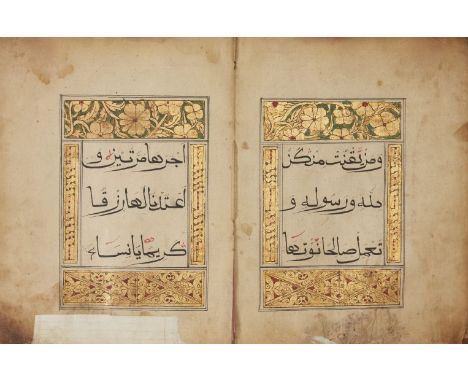 ومن يقنت منكن
لله ورسوله و
تعمل صالحا نوتها
اجرها مرتين و
اعتدنا لها رزقا
كريما يانساء